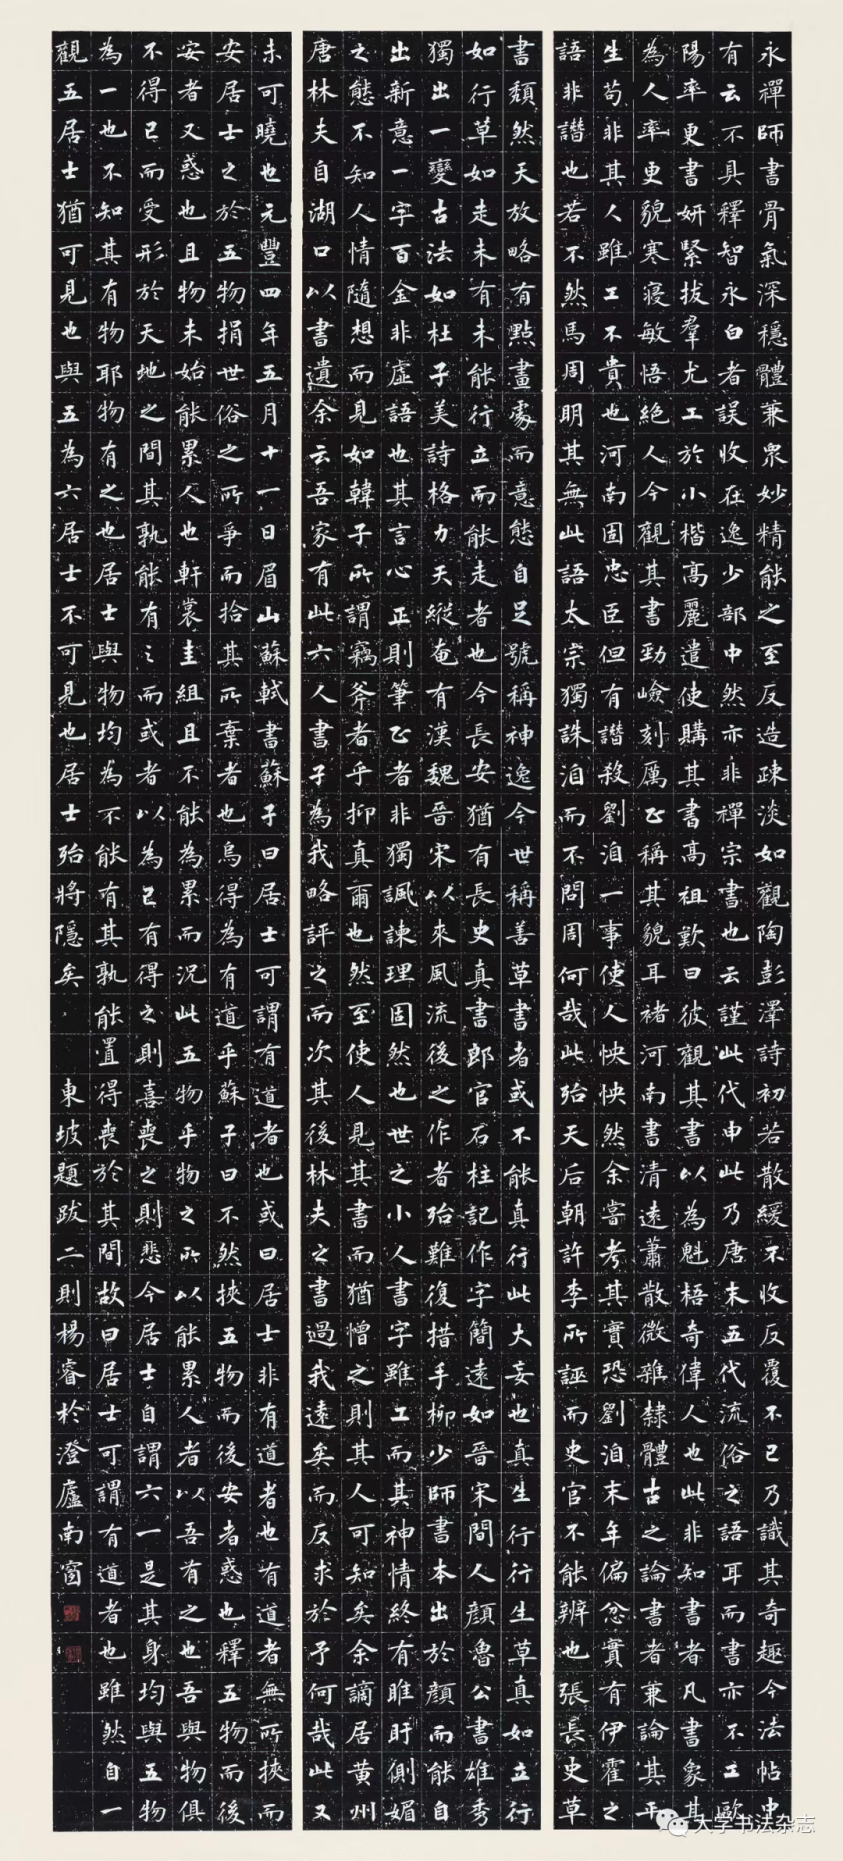 永禪師書骨氣深穩體兼眾妙精能之至反造疎淡如觀陶彭澤詩初若散緩不收反覆不已乃識其奇趣今法帖中
有云不具釋智永白者誤收在逸少部中然亦非禪宗書也云謹此代申此乃唐末五代流俗之語耳而書亦不工歐
陽率更書妍緊拔羣尤工於小楷高麗遣使購其書高祖歎曰彼觀其書以為魁梧奇偉人也此非知書者凡書象其
為人率更貌寒寢敏悟絕人今觀其書勁嶮刻厲正稱其貌耳褚河南書清遠蕭散微雜隸體古之論書者兼論其平
生苟非其人雖工不貴也河南固忠臣但有譖殺劉洎一事使人怏怏然余嘗考其實恐劉洎末年偏忿實有伊霍之
語非譖也若不然馬周明其無此語太宗獨誅洎而不問周何哉此殆天后朝許李所誣而史官不能辨也張長史草
書頹然天放略有點畫處而意態自足號稱神逸今世稱善草書者或不能真行此大妄也真生行行生草真如立行
如行草如走未有未能行立而能走者也今長安猶有長史真書郎官石柱記作字簡遠如晉宋間人顏魯公書雄秀
獨出一變古法如杜子美詩格力天縱奄有漢魏晉宋以來風流後之作者殆難復措手柳少師書本出於顏而能自
出新意一字百金非虛語也其言心正則筆正者非獨諷諫理固然也世之小人書字雖工而其神情終有睢盱側媚
之態不知人情隨想而見如韓子所謂竊斧者乎抑真爾也然至使人見其書而猶憎之則其人可知矣余謫居黃州
唐林夫自湖口以書遺余云吾家有此六人書子為我略評之而次其後林夫之書過我遠矣而反求於予何哉此又
未可曉也元豐四年五月十一日眉山蘇軾書蘇子曰居士可謂有道者也或曰居士非有道者也有道者無所挾而
安居士之於五物捐世俗之所爭而拾其所棄者也烏得為有道乎蘇子曰不然挾五物而後安者惑也釋五物而後
安者又惑也且物未始能累人也軒裳圭組且不能為累而況此五物乎物之所以能累人者以吾有之也吾與物俱
不得已而受形於天地之間其孰能有之而或者以為己有得之則喜喪之則悲今居士自謂六一是其身均與五物
為一也不知其有物耶物有之也居士與物均為不能有其孰能置得喪於其間故曰居士可謂有道者也雖然自一
觀五居士猶可見也與五為六居士不可見也居士殆將隱矣 東坡題跋二則楊睿於澄廬南窗
大学书法杂志